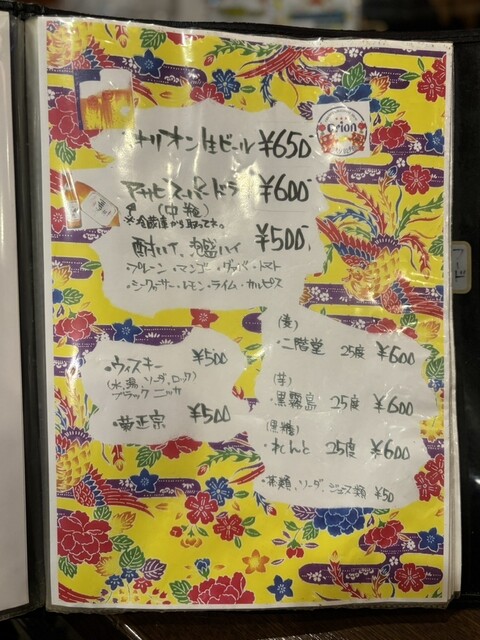 オリオン生ビール ¥650
Orion
アサヒスーパードライ ¥600
(中瓶)
※冷蔵庫から取って下さい。
酎ハイ、泡盛ハイ ¥500
・プレーン・マンゴー・グァバ・トマト
・シークヮサー・レモン・ライム・カルピス
・ウィスキー ¥500
(水、湯、ソーダ、ロック)
ブラックニッカ
・菊正宗 ¥500
(麦)
・二階堂 25度 ¥600
(芋)
・黒霧島 25度 ¥600
(黒糖)
・れんと 25度 ¥600
・茶類、ソーダ、ジュース類 ¥50